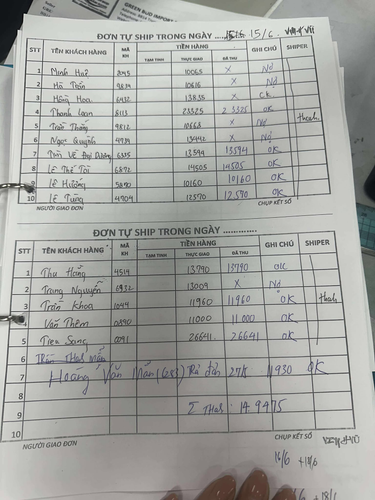 GREEN BUD IMPORT
ĐƠN TỰ SHIP TRONG NGÀY ..... 15/6.
STT TÊN KHÁCH HÀNG MÃ KH TIỀN HÀNG GHI CHÚ SHIPER
TẠM TÍNH THỰC GIAO ĐÃ THU
1 Minh Huệ 2045 10065 X Nợ
2 Hà Trần 9834 10616 X Nợ
3 Hồng Hoa 6432 13835 X Ck
4 Thanh Loan 8113 23325 23325 OK
5 Trần Thắng 9812 10668 X Nợ
6 Ngọc Quỳnh 4734 13442 X Nợ
7 Trần Vẽ Đại Dương 6335 13594 13594 OK
8 Lê Thế Tài 6892 14505 14505 OK
9 Lê Hường 5890 10160 10160 OK
10 Lê Tùng 4704 12570 12570 OK
NGƯỜI GIAO ĐƠN CHỤP KẾT SỔ
ĐƠN TỰ SHIP TRONG NGÀY .............
STT TÊN KHÁCH HÀNG MÃ KH TIỀN HÀNG GHI CHÚ SHIPER
TẠM TÍNH THỰC GIAO ĐÃ THU
1 Thu Hằng 4514 13790 13790 OK
2 Trang Nguyễn 6932 13009 X Nợ
3 Trần Khoa 1044 11960 11960 OK
Văn Thêm 0890 11000 11000 OK
5 Sang 0091 26641 26641 OK
6
7 Hoàng Văn Mẫn (683) Trả đơn 27K 11930 OK
8
9 Σ 14.9475
10
NGƯỜI GIAO ĐƠN CHỤP KẾT SỔ
16/6 +18/6
+18/1